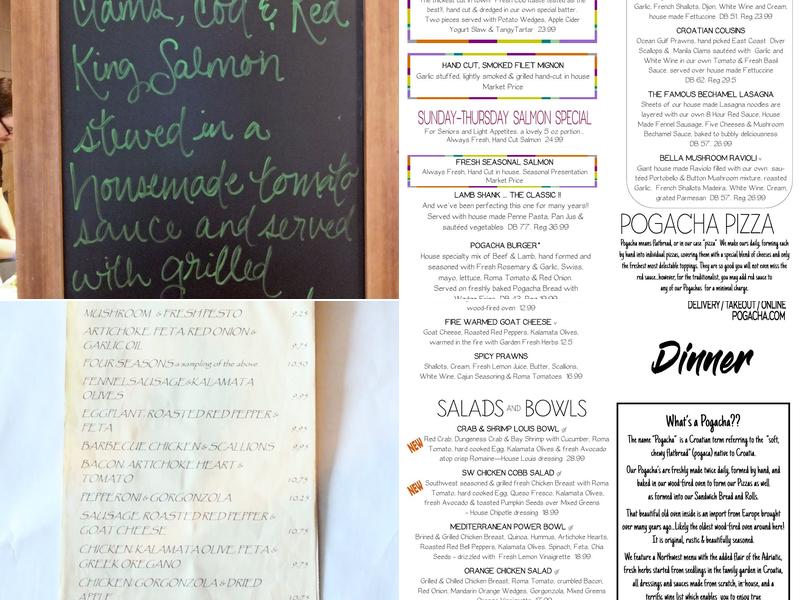 Clams, Cod & Red
King Salmon
stewed in a
housemade tomato
sauce and served
with grilled
best!, hand cut & dredged in our own special batter.
Two pieces served with Potato Wedges, Apple Cider
Yogurt Slaw & TangyTartar 23.99
HAND CUT, SMOKED FILET MIGNON
Garlic stuffed, lightly smoked & grilled hand-cut in house
Market Price
SUNDAY-THURSDAY SALMON SPECIAL
For Seniors and Light Appetites, a lovely 5 oz portion...
Always Fresh, Hand Cut Salmon 24.99
FRESH SEASONAL SALMON
Always Fresh, Hand Cut in house, Seasonal Presentation
Market Price
LAMB SHANK ... THE CLASSIC !!
And we've been perfecting this one for many years!!
Served with house made Penne Pasta, Pan Jus &
sautéed vegetables DB 77. Reg 36.99
POGACHA BURGER*
House specialty mix of Beef & Lamb, hand formed and
seasoned with Fresh Rosemary & Garlic, Swiss,
mayo, lettuce, Roma Tomato & Red Onion.
Served on freshly baked Pogacha Bread with
Garlic, French Shallots, Dijon, White Wine and Cream,
house made Fettuccine DB 51. Reg 23.99
CROATIAN COUSINS
Ocean Gulf Prawns, hand picked East Coast Diver
Scallops & Manila Clams sautéed with Garlic and
White Wine in our own Tomato & Fresh Basil
Sauce, served over house made Fettuccine
DB 62. Reg 29.5
THE FAMOUS BECHAMEL LASAGNA
Sheets of our house made Lasagna noodles are
layered with our own 8 Hour Red Sauce, House
Made Fennel Sausage, Five Cheeses & Mushroom
Bechamel Sauce, baked to bubbly deliciousness
DB 57. 26.99
BELLA MUSHROOM RAVIOLI v
Giant house made Ravioli filled with our own sau-
téed Portobello & Button Mushroom mixture, roasted
Garlic, French Shallots Madeira, White Wine, Cream,
grated Parmesan DB 57. Reg 26.99
POGACHA PIZZA
Pogacha means flatbread, or in our case "pizza" We make ours daily, forming each
by hand into individual pizzas, covering them with a special blend of cheeses and only
the freshest most delectable toppings. They are so good you will not even miss the
red sauce...however, for the traditionalist, you may add red sauce to
any of our Pogachas for a minimal charge.
DELIVERY / TAKEOUT / ONLINE
POGACHA.COM
MUSHROOM & FRESH PESTO 9.25
ARTICHOKE, FETA, RED ONION &
GARLIC OIL 9.75
FOUR SEASONS a sampling of the above 10.50
FENNEL SAUSAGE & KALAMATA
OLIVES 9.95
EGGPLANT, ROASTED RED PEPPER &
FETA 9.95
BARBECUE CHICKEN & SCALLIONS 9.95
BACON, ARTICHOKE HEART &
TOMATO 10.75
PEPPERONI & GORGONZOLA 10.25
SAUSAGE, ROASTED RED PEPPER &
GOAT CHEESE 10.75
CHICKEN, KALAMATA OLIVE, FETA &
GREEK OREGANO 9.75
CHICKEN, GORGONZOLA & DRIED
APPLE
wood-fired oven 12.99
FIRE WARMED GOAT CHEESE v
Goat Cheese, Roasted Red Peppers, Kalamata Olives,
warmed in the fire with Garden Fresh Herbs 12.5
SPICY PRAWNS
Shallots, Cream, Fresh Lemon Juice, Butter, Scallions,
White Wine, Cajun Seasoning & Roma Tomatoes 16.99
SALADS AND BOWLS
CRAB & SHRIMP LOUIS BOWL gf
NEW Red Crab, Dungeness Crab & Bay Shrimp with Cucumber, Roma
Tomato, hard cooked Egg, Kalamata Olives & fresh Avocado
atop crisp Romaine—House Louis dressing 28.99
SW CHICKEN COBB SALAD gf
NEW Southwest seasoned & grilled fresh Chicken Breast with Roma
Tomato, hard cooked Egg, Queso Fresco, Kalamata Olives,
fresh Avocado & toasted Pumpkin Seeds over Mixed Greens
– House Chipotle dressing 18.99
MEDITERRANEAN POWER BOWL gf
Brined & Grilled Chicken Breast, Quinoa, Hummus, Artichoke Hearts,
Roasted Red Bell Peppers, Kalamata Olives, Spinach, Feta, Chia
Seeds – drizzled with Fresh Lemon Vinaigrette 18.99
ORANGE CHICKEN SALAD gf
Grilled & Chilled Chicken Breast, Roma Tomato, crumbled Bacon,
Red Onion, Mandarin Orange Wedges, Gorgonzola, Mixed Greens
Dinner
What's a Pogacha??
The name "Pogacha" is a Croatian term referring to the "soft,
chewy flatbread" (pogaca) native to Croatia.
Our Pogacha's are freshly made twice daily, formed by hand, and
baked in our wood-fired oven to form our Pizzas as well
as formed into our Sandwich Bread and Rolls.
That beautiful old oven inside is an import from Europe brought
over many years ago...Likely the oldest wood-fired oven around here!
It is original, rustic & beautifully seasoned.
We feature a Northwest menu with the added flair of the Adriatic,
fresh herbs started from seedlings in the family garden in Croatia,
all dressings and sauces made from scratch, in-house, and a
terrific wine list which enables you to enjoy true